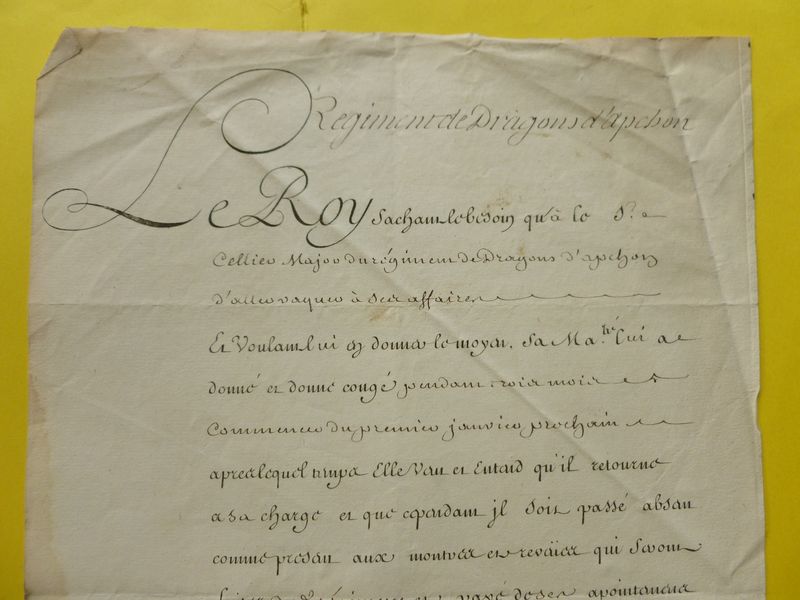 Regiment de Dragons d'apchon
Le Roy Sachant le besoin qu'à le S.r
Cellier Major du régiment de Dragons d'apchon
d'aller vaquer à Ses affaires
Et Voulant lui en donner le moyen, Sa Ma.té lui a
donné et donne congé pendant trois mois
Commencer du premier janvier prochain
apres lequel temps Elle Veut et Entend qu'il retourne
a sa charge et que cependant jl soit passé absent
comme present aux montres et reveües qui Seront
payé de ses apointemens